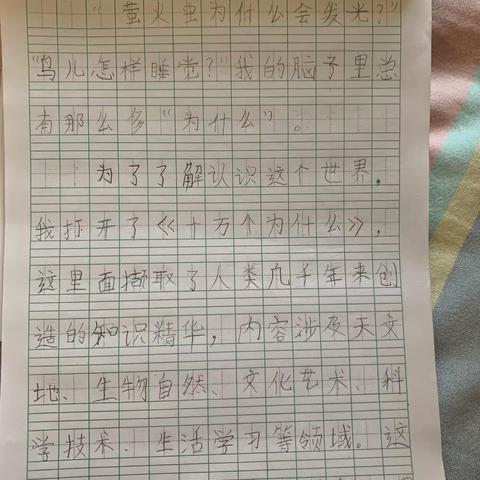 “萤火虫为什么会发光？”
“鸟儿怎样睡觉？”我的脑子里总
有那么多“为什么”。
为了了解认识这个世界，
我打开了《十万个为什么》，
这里面撷取了人类几千年来创
造的知识精华，内容涉及天文
地、生物自然、文化艺术、科
学技术、生活学习等领域。这